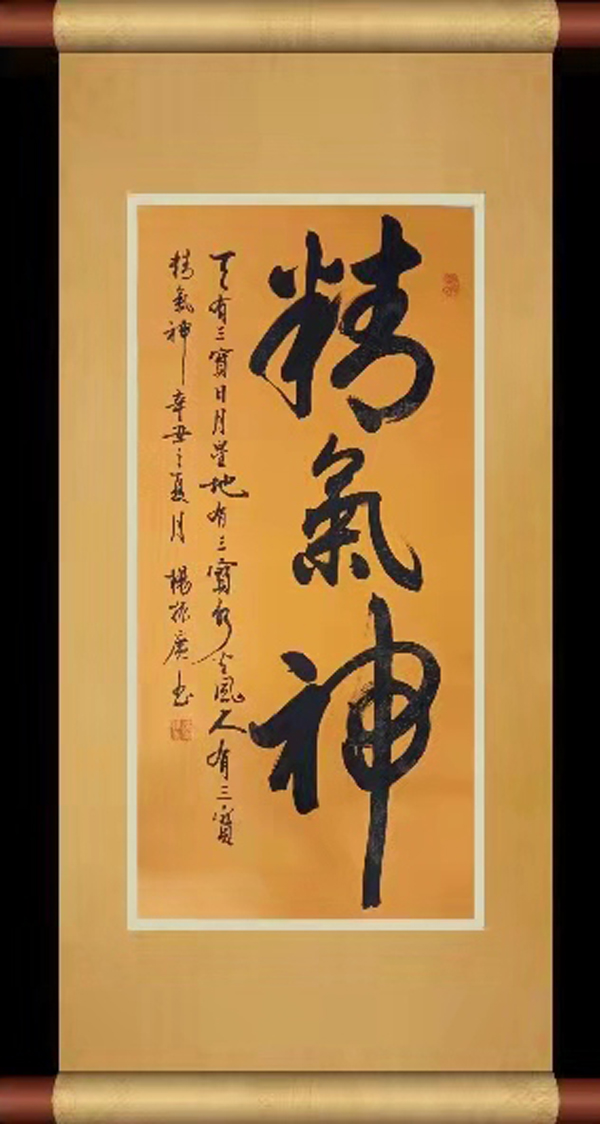 精氣神
天有三寶日月星地有三寶水火風人有三寶
精氣神辛丑之夏月楊振廣书